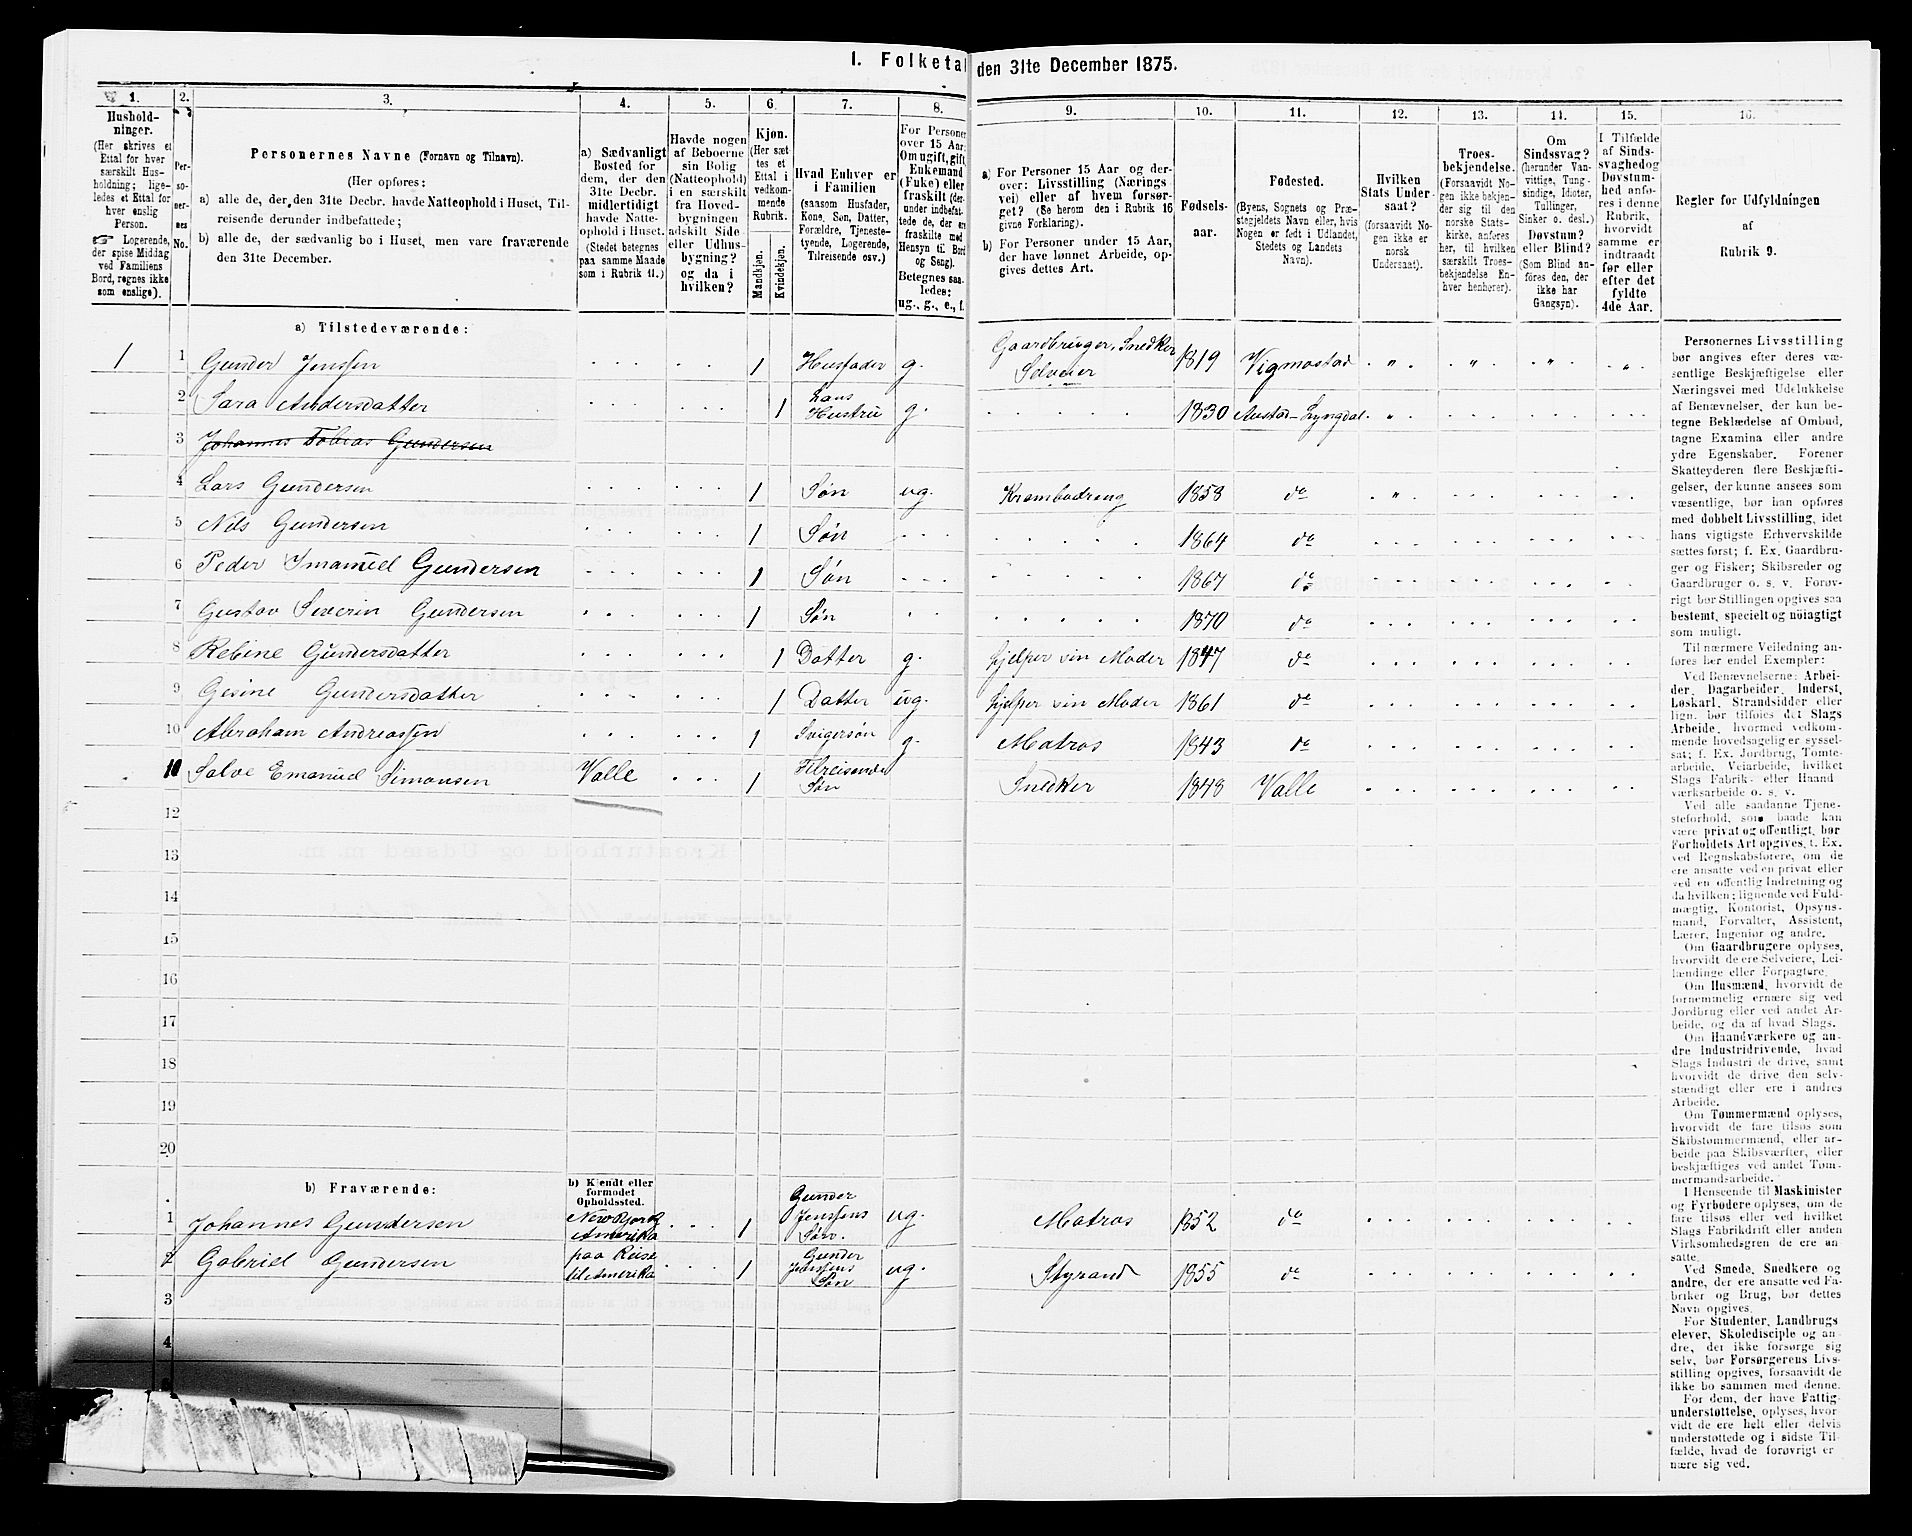 1. Folketal
den 31te December 1875.
1.
2.
3.
4.
5.
6.
7.
8.
9.
10.
11.
12.
13.
14.
15.
16.
Hushold-
ninger.
(Her skrives et
Ettal for hver
særskilt Hus-
holdning; lige-
ledes et Ettal for
hver enslig
Person.
☞ Logerende,
der spise Middag
ved Familiens
Bord, regnes ikke
som enslige).
Per-
so-
ner-
nes
No.
Personernes Navne (Fornavn og Tilnavn).
(Her opføres:
a) alle de, der, den 31te Decbr. havde Natteophold i Huset, Til-
reisende derunder indbefattede;
b) alle de, der sædvanlig bo i Huset, men vare fraværende
den 31te December.
a) Sædvanligt
Bosted for
dem, der den
31te Decbr.
midlertidigt
havde Natte-
ophold i Huset.
(Stedet betegnes
paa samme Maade
som i Rubrik 11.)
Havde nogen
af Beboerne
sin Bolig
(Natteophold)
i en særskilt
fra Hoved-
bygningen
adskilt Side-
eller Udhus-
bygning?
og da i
hvilken?
Kjøn.
(Her sæt-
tes et
Ettal i
vedkom-
mende
Rubrik.
Mandkjøn.
Kvindekjøn.
Hvad Enhver er
i Familien
(saasom Husfader,
Kone, Søn, Datter,
Forældre, Tjeneste-
tyende, Logerende,
Tilreisende osv.)
For Personer
over 15 Aar:
Om ugift, gift,
Enkemand
(Enke) eller
fraskilt (der-
under indbefat-
tede de, der ere
fraskilte med
Hensyn til Bord
og Seng).
Betegnes saa-
ledes:
ug., g., e., f.
a) For Personer 15 Aar og der-
over: Livsstilling (Nærings-
vei) eller af hvem forsør-
get? (Se herom den i Rubrik 16
givne Forklaring).
b) For Personer under 15 Aar,
der have lønnet Arbeide, op-
gives dettes Art.
Fødsels-
aar.
Fødested.
(Byens, Sognets og Præ-
stegjeldets Navn eller, hvis
Nogen er født i Udlandet,
Stedets og Landets
Navn).
Hvilken
Stats Under-
saat?
(forsaavidt No-
gen ikke er
norsk
Undersaat).
Troes-
bekjendelse.
(Forsaavidt No-
gen ikke bekjen-
der sig til den
norske Stats-
kirke, anføres
her, til hvilken
særskilt Troes-
bekjendelse En-
hver henhører).
Om
Sindssvag?
(herunder Van-
vittige, Tung-
sindige, Idioter,
Tullinger,
Sinker o. desl.)
Døvstum?
eller Blind?
(Som Blind an-
føres den, der
ikke har
Gangsyn).
I Tilfælde
af Sinds-
svaghedog
Døvstum-
hed anfø-
res i denne
Rubrik,
hvorvidt
samme er
indtraadt
før eller
efter det
fyldte
4de Aar.
Regler for Udfyldningen
af
Rubrik 9.
a) Tilstedeværende:
1 1 Gunder Jenssen 1 Husfader g. Gaardbruger, Snedker Selveier 1819 Vigmostad
2 Sara Andersdatter 1 hans Hustru g. 1830 Austad-Lyngdal
3 Johannes Tobias Gundersen
4 Lars Gundersen 1 Søn ug. Krambodreng 1858 do
5 Nils Gundersen 1 Søn 1864 do
6 Peder Imanuel Gundersen 1 Søn 1867 do
7 Gustav Severin Gundersen 1 Søn 1870 do
8 Rebine Gundersdatter 1 Datter g. hjelper sin Moder 1847 do
9 Gesine Gundersdatter 1 Datter ug. hjelper sin Moder 1861 do
10 Abraham Andreassen 1 Svigersøn g. Matros 1843 do
Salve Emanuel Simonsen Valle 1 Tilreisende Søn Snedker 1848 Valle
12
13
14
15
16
17
18
19
20
b) Fraværende:
b) Kjendt eller
formodet
Opholdssted.
1 Johannes Gundersen New Bjork Amerika 1 Gunder Jenssens Søn. ug. Matros 1852 do
2 Gabriel Gundersen paa Reise til Amerika 1 Gunder Jenssens Søn ug. Styrand 1855 do
3
4
Personernes Livsstilling
bør angives efter deres væ-
sentlige Beskjæftigelse eller
Næringsvei med Udelukkelse
af Benævnelser, der kun be-
tegne Beklædelse af Ombud,
tagne Examina eller andre
ydre Egenskaber. Forener
Skatteyderen flere Beskjæfti-
gelser, der kunne ansees som
væsentlige, bør han opføres
med dobbelt Livsstilling, idet
hans vigtigste Erhvervskilde
sættes først; f. Ex. Gaardbru-
ger og Fisker; Skibsreder og
Gaardbruger o. s. v. Forøv-
rigt bør Stillingen opgives saa
bestemt, specielt og nöiagtigt
som muligt.
Til nærmere Veiledning an-
føres her endel Exempler:
Ved Benævnelserne: Arbei-
der, Dagarbeider, Inderst,
Løskarl, Strandsidder eller
lign. bør tilføies det Slags
Arbeide, hvormed vedkom-
mende hovedsagelig er syssel-
sat; f. Ex. Jordbrug, Tomte-
arbeide, Veiarbeide, hvilket
Slags Fabrik- eller Haand-
værksarbeide o. s. v.
Ved alle saadanne Tjene-
steforhold, som baade kan
være privat og offentligt, bør
Forholdets Art opgives, f. Ex.
ved Regnskabsførere, om de
ere ansatte ved en privat eller
ved en offentlig Indretning og
da hvilken; lignende ved Fuld-
mægtig, Kontorist, Opsyns-
mand, Forvalter, Assistent,
Lærer, Ingeniør og andre.
Om Gaardbrugere oplyses,
hvorvidt de ere Selveiere, Lei-
lændinge eller Forpagtere.
Om Husmænd, hvorvidt de
fornemmelig ernære sig ved
Jordbrug eller ved andet Ar-
beide, og da af hvad Slags.
Om Haandværkere og an-
dre Industridrivende, hvad
Slags Industri de drive, samt
hvorvidt de drive den selv-
stændigt eller ere i andres
Arbeide.
Om Tømmermænd oplyses,
hvorvidt de fare tilsøs som
Skibstømmermænd, eller ar-
beide paa Skibsværfter, eller
beskjæftiges ved andet Tøm-
mermandsarbeide.
I Henseende til Maskinister
og Fyrbødere oplyses, om de
fare tilsøs eller ved hvilket
Slags Fabrikdrift eller anden
Virksomhedsgren de ere an-
satte.
Ved Smede, Snedkere og
andre, der ere ansatte ved Fa-
briker og Brug, bør dettes
Navn opgives.
For Studenter, Landbrugs-
elever, Skoledisciple og an-
dre, der ikke forsørge sig
selv, bør Forsørgerens Livs-
stilling opgives, forsaavidt de
ikke bo sammen med denne.
For dem, der have Fattig-
understøttelse, oplyses, hvor-
vidt de ere helt eller delvis
understøttede og i sidste Til-
fælde, hvad de forøvrigt er-
nære sig ved.